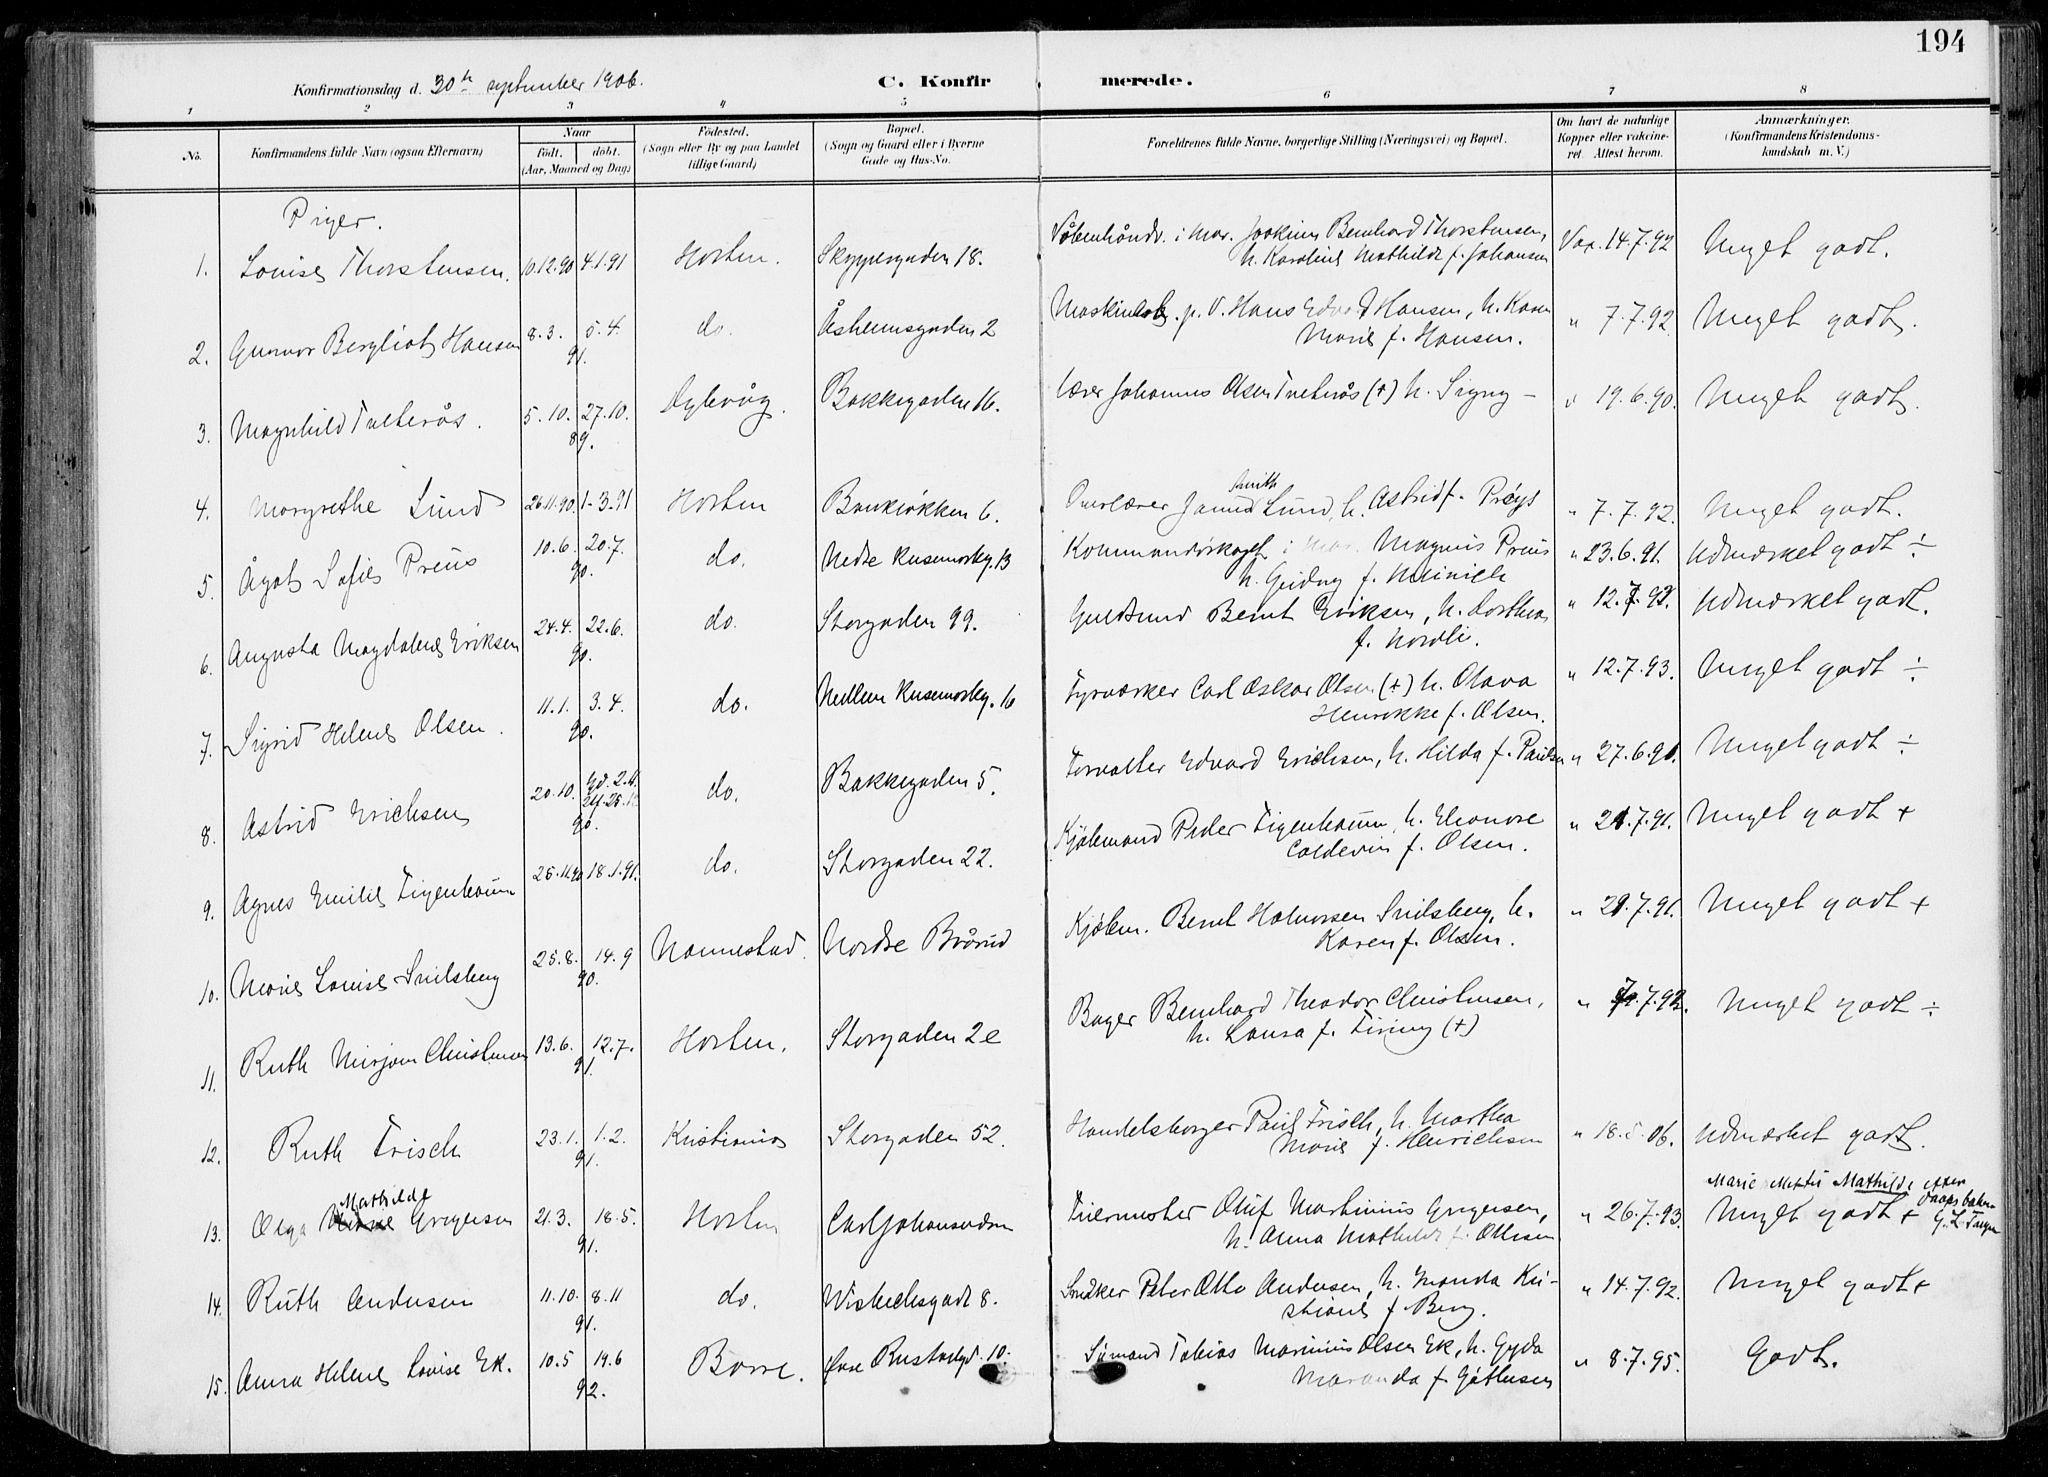 194
Konfirmationsdag d. 30te september 1906. C. Konfirmerede.
1 2 3 4 5 6 7 8
No. Konfirmandens fulde Navn (ogsaa Efternavn) Naar født. døbt. (Aar, Maaned og Dag) Fødested. (Sogn eller By og paa Landet tillige Gaard) Bopæl. (Sogn og Gaard eller i Byerne Gade og Hus-No. Forældrenes fulde Navne, borgerlige Stilling (Næringsvei) og Bopæl. Om havt de naturlige Kopper eller vakcineret. Attest herom. Anmærkninger. (Konfirmandens Kristendomskundskab m. V.)
Piger.
1. Louise Thorstensen. 10.12.90 4.1.91 Horten. Skippergaden 18. i Mar. Joakim Bernhard Thorstensen, h. Karoline Mathilde f. Johansen Vax. 14.7.92 Meget godt.
2. Gunvor Bergliot Hansen 8.3. 5.4. 91. do. Åsheimsgaden 2 p. V. Hans Edvard Hansen, h. Karen Marie f. Hansen. " 7.7.92 Meget godt.
3. Magnhild Tveterås. 5.10. 27.10. 89. Dybvåg. Bakkegaden 16. Lærer Johannes Olsen Tveterås (+) h. Signy – " 19.6.90. Meget godt.
4. Margrethe Lund 26.11.90. 1-3.91 Horten Bankløkken 6. Overlærer Smith Lund, h. Astrid f. Prøys " 7.7.92. Meget godt.
5. Ågot Sofie Preus 10.6. 20.7. 90. do. Nedre Keisemarkg. 13 i Mar. Magnus Preus h. Gudny f. Meinich " 23.6.91. Udmærket godt ÷
6. Augusta Magdalene Eriksen 24.4. 22.6. 90. do. Storgaden 99. Guldsmed Bernt Eriksen, h. Dorthea f. Nordli. " 12.7.92. Udmærket godt.
7. Sigrid Helene Olsen. 11.1. 3.4. 90. do. Mellem Keisemarkg. 16 Fyrværker Carl Oskar Olsen (+) h. Olava Henrikke f. Olsen. " 12.7.93. Meget godt ÷
8. Astrid Erichsen 20.10. 90. do. Bakkegaden 5. Forvalter Edvard Erichsen, h. Hilda f. Paulsen " 27.6.91. Meget godt ÷
9. Agnes Emilie Figenbaum 25.11.90 18.1.91. do. Storgaden 22. Kjøbmand Peder Figenbaum, h. Eleonore Coldevin f. Olsen. " 21.7.91. Meget godt +
10. Marie Louise Snilsberg 25.8. 14.9 90. Nannestad. Nordre Brårud Kjøbm. Bernt Halvorsen Snilsberg, h. Karen f. Olsen. " 21.7.91. Meget godt +
11. Ruth Mirjam Christensen 13.6. 12.7. 91. Horten. Storgaden 2e Bager Bernhard Theodor Christensen, h. Laura f. Firing (+) " 7.92. Meget godt ÷
12. Ruth Frisch 23.1. 1.2. 91. Kristiania Storgaden 52. Handelsborger Paul Frisch, h. Martha Marie f. Henrichsen " 18.5.06. Udmærket godt.
Marie Mathilde efter daapsboken
13. Olga Mathilde Gregersen 21.3. 18.5. 91. Horten Carljohansværn Oluf Martinius Gregersen, h. Anna Mathilde f. Ottesen " 26.7.93. Meget godt +
14. Ruth Andersen 11.10. 8.11 91. do. Wistechsgade 8. Snedker Peter Otto Andersen, h. Manda Kristiane f. Berg. " 14.7.92. Meget godt +
15. Anna Helene Louise Ek. 10.5 19.6 92. Borre. Øvre Rustadgd. 10. Sømand Tobias Marinius Olsen Ek, h. Gyda Maranda f. Gjøthesen " 8.7.95. Godt.